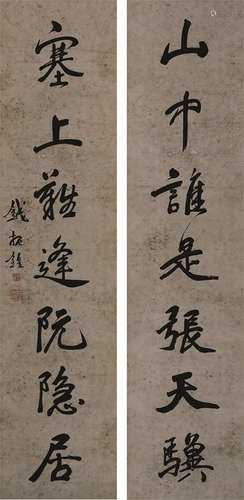 山中誰是張天驥
塞上難逢阮隱居
錢振鍠